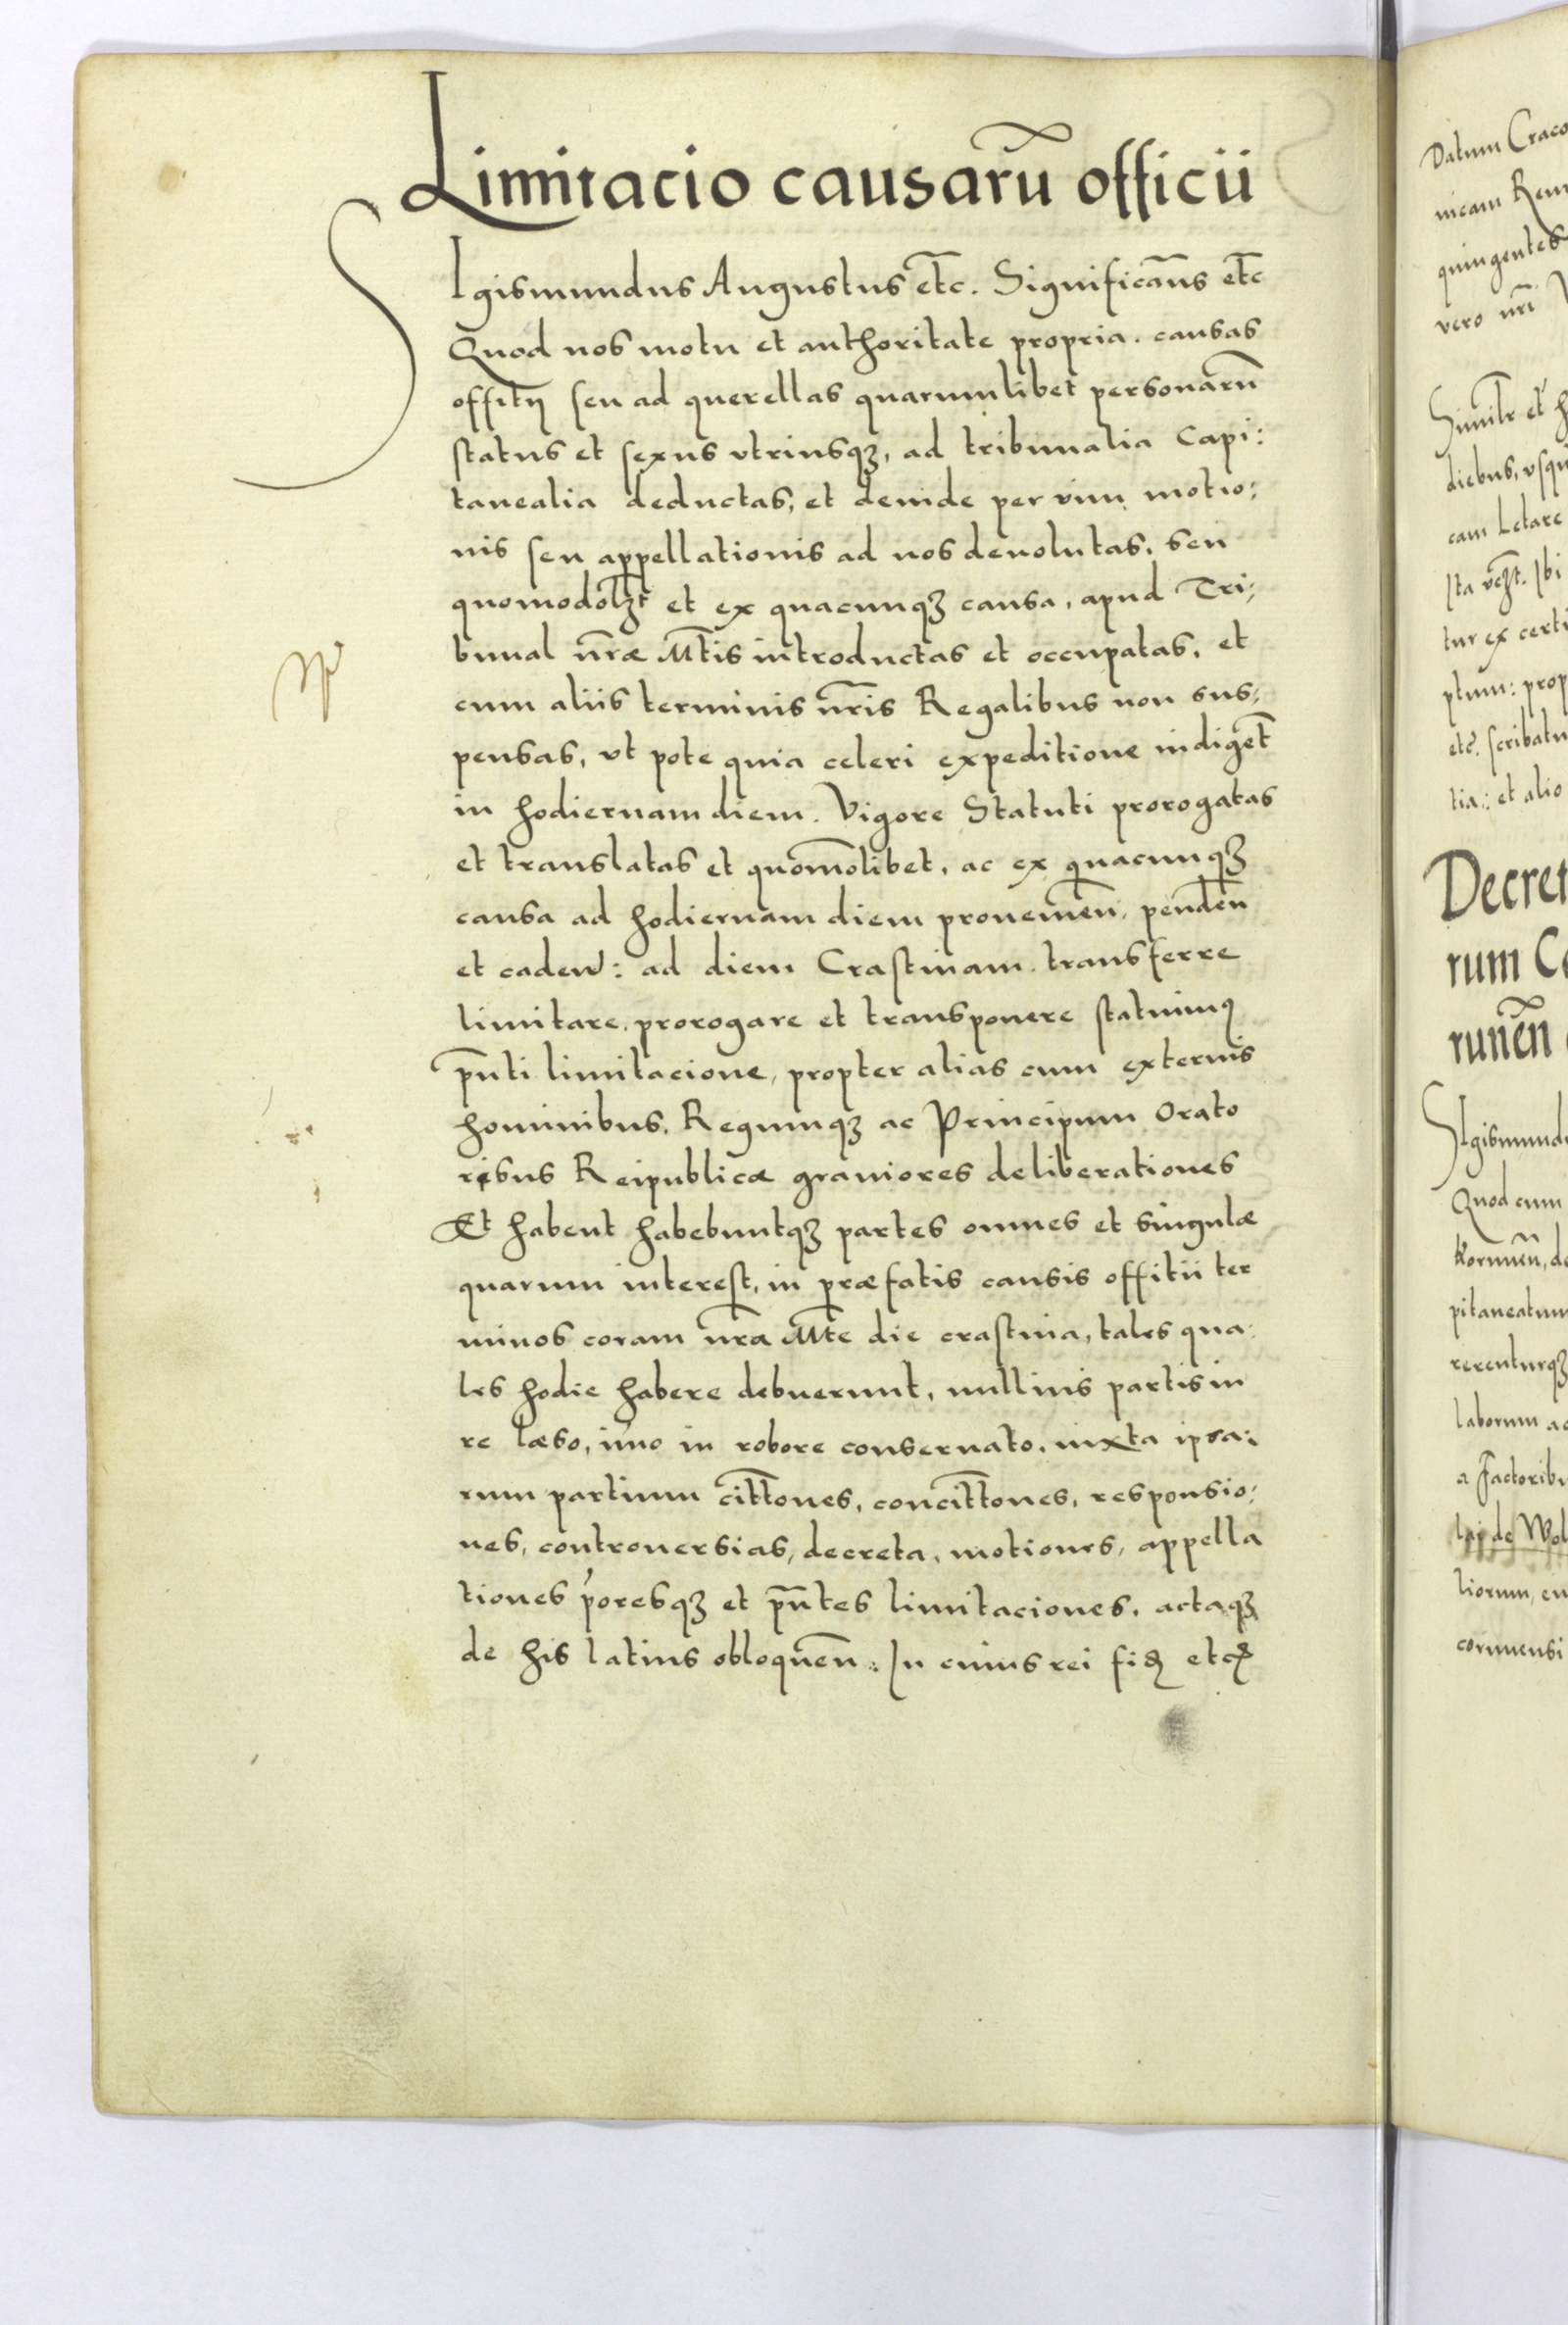 Limitacio causarū officii
SIgismundus Augustus etc̄. Significam̄s etc̄
Quod nos motu et authoritate propria. causas
offitij seu ad querellas quarumlibet personarū
status et sexus vtriusqꝫ, ad tribunalia Capi:
tanealia deductas, et deinde per vim motio:
nis seu appellationis ad nos deuolutas, seu
quomodolꝫt et ex quacunqꝫ causa, apud Tri:
bunal nr̄æ Mt̄is introductas et occupatas, et
cum aliis terminis nr̄is Regalibus non sus:
pensas, vt pote quia celeri expeditione indiget̄
in hodiernam diem. Vigore Statuti prorogatas
et translatas et quom̄olibet, ac ex quacunqꝫ
causa ad hodiernam diem prouenien̄, penden̄
et caden̄: ad diem Crastinam transferre
limitare, prorogare et transponere statuimꝰ
pn̄ti limitacione, propter alias cum externis
hominibus, Regumqꝫ ac Principum Orato
ribus Reipublicæ grauiores deliberationes
Et habent habebuntqꝫ partes omnes et singulæ
quarum interest, in præfatis causis offitii ter
minos coram nr̄a Mt̄e die crastina, tales qua:
les hodie habere debuerunt, nullius partis iu
re læso, imo in robore conseruato, iuxta ipsa:
rum partium citt̄ones, concitt̄ones, responsio:
nes, controuersias, decreta, motiones, appella
tiones p'oresqꝫ et pn̄tes limitaciones, actaqꝫ
de his latius obloquen̄: In cuius rei fid etc
Datum Craco
nicam Rem
quingentes
vero nr̄i
Similr et h
diebus, vsqu
cam Letare
Ibi
tur ex certi
ptum: prop
etc. scribatu
tia: et alio
Decret
rum C
runen̄
SIgismund
Quod cum
Kornuen̄, de
pitaneatum
rerenturqꝫ
laborum ac
a Factoribu
de Wol
liorum, cu
cornuensi